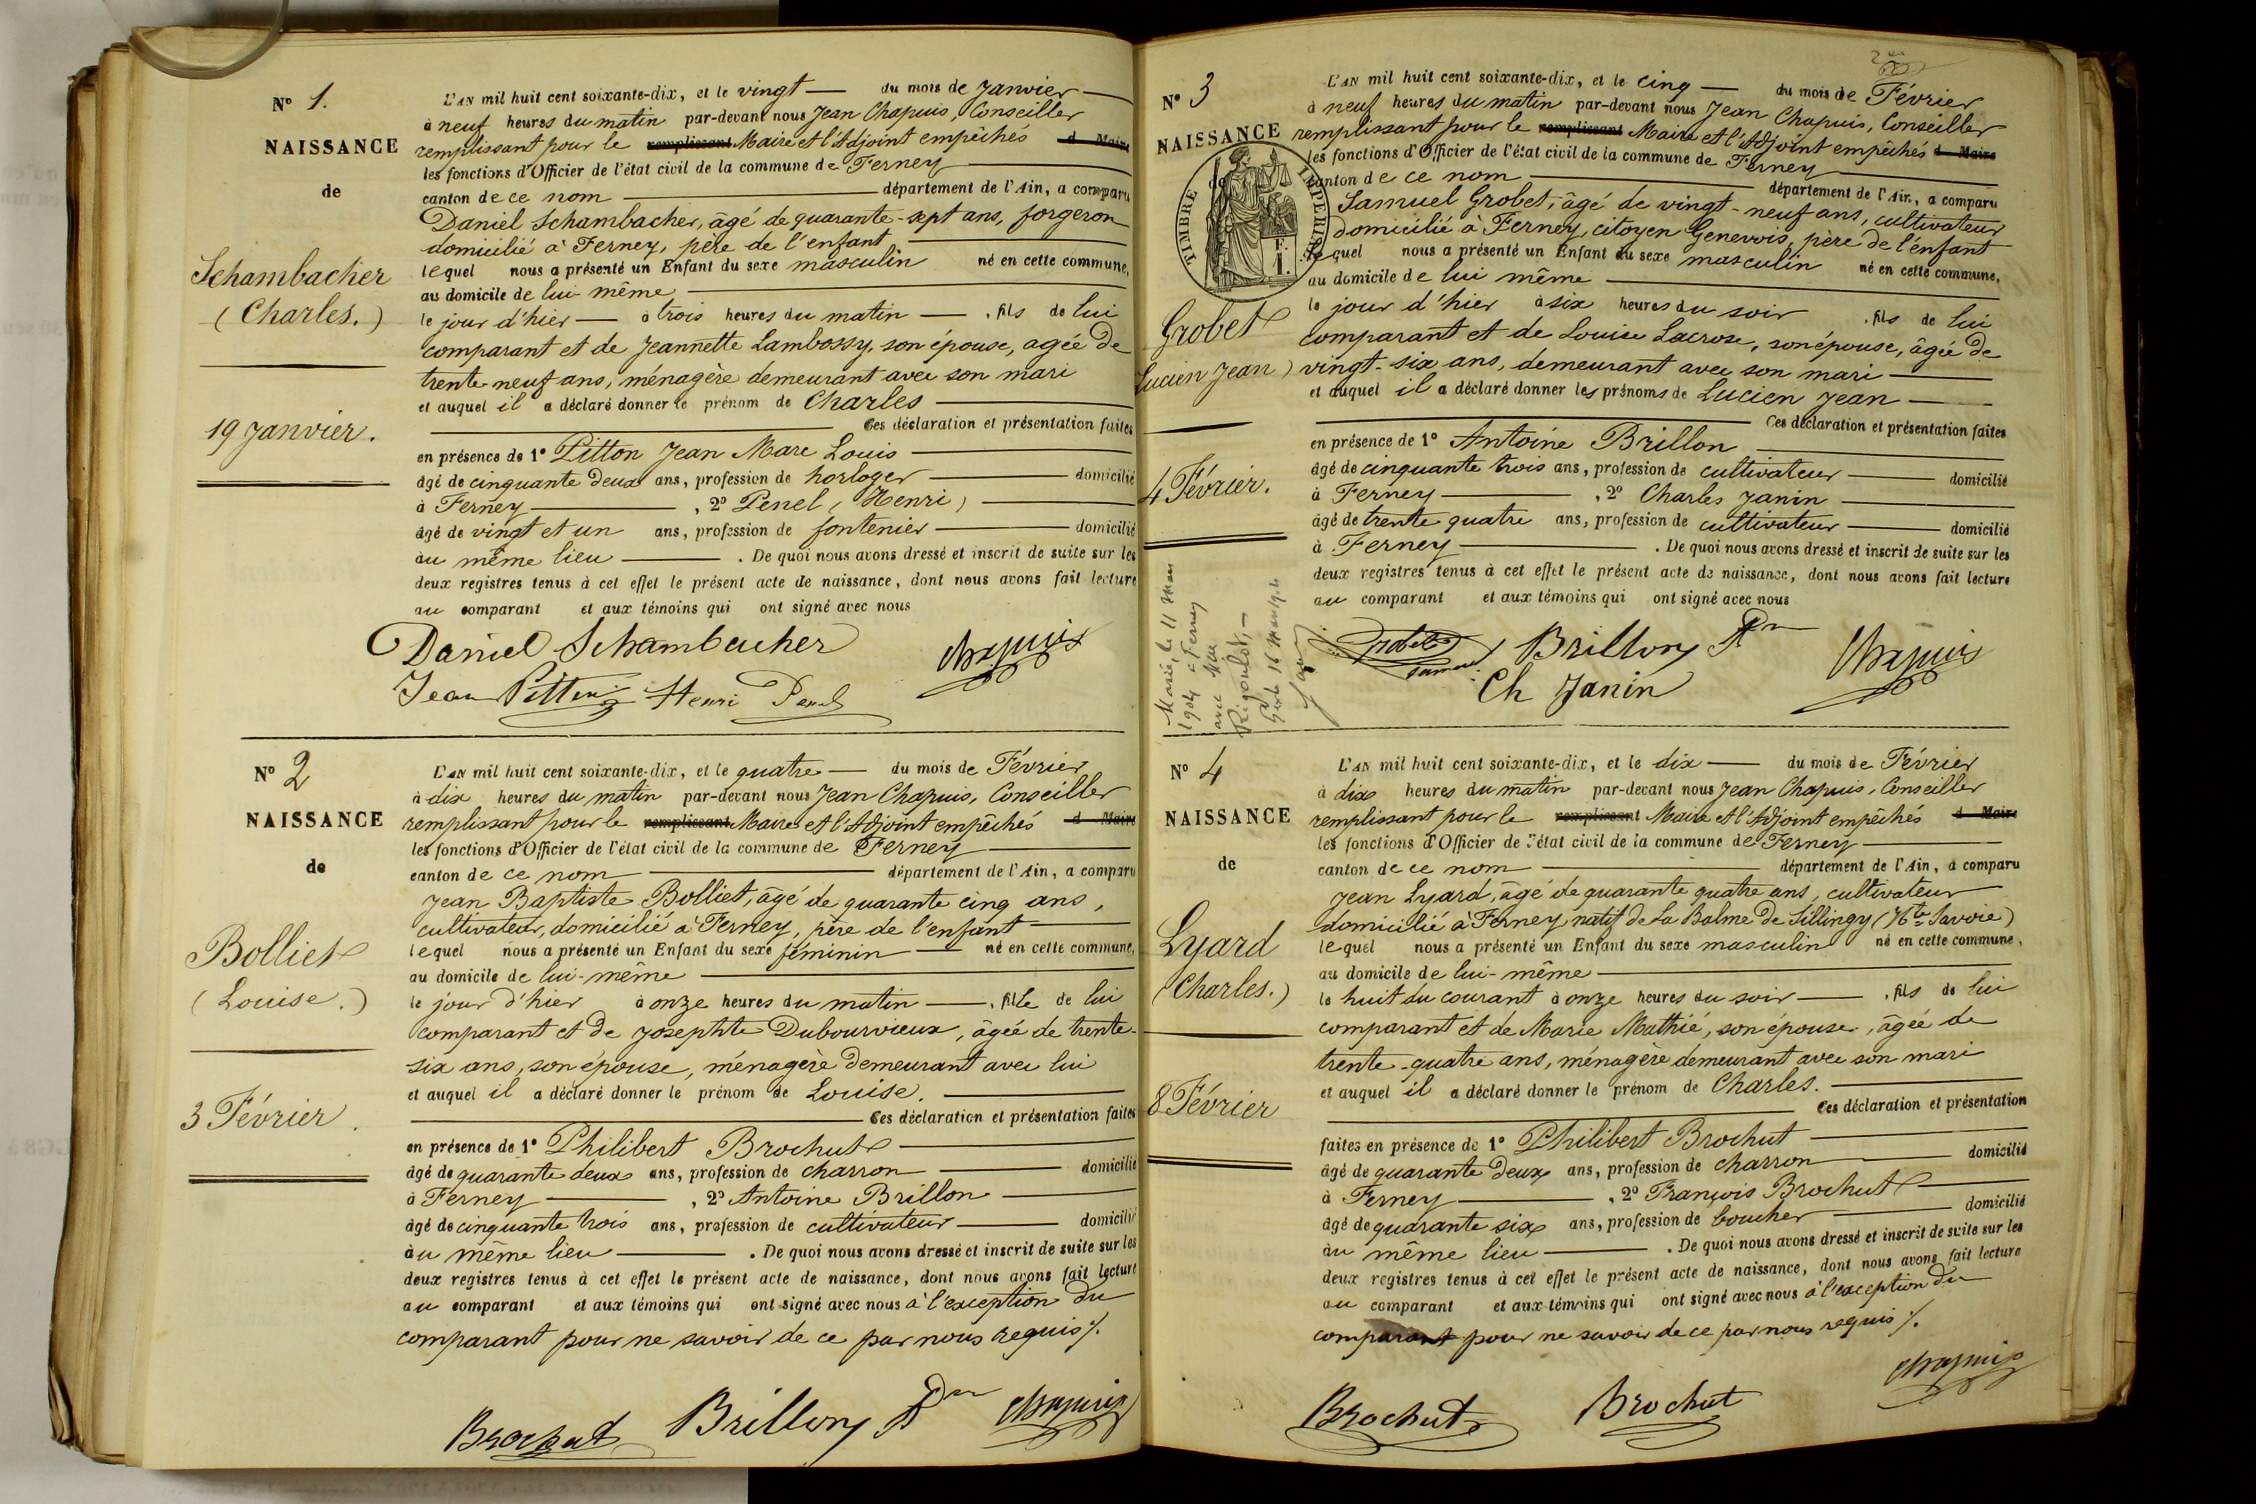 N° 1.
NAISSANCE
de
Schambacher
(Charles.)
19 Janvier.
L'AN mil huit cent soixante-dix, et le vingt du mois de Janvier
à neuf heures du matin par-devant nous Jean Chapuis, Conseiller
remplissant pour le remplissant Maire et l'Adjoint empêchés d Maire
les fonctions d'Officier de l'état civil de la commune de Ferney
canton de ce nom département de l'Ain, a comparu
Daniel Schambacher, âgé de quarante-sept ans, forgeron
domicilié à Ferney, père de l'enfant
lequel nous a présenté un Enfant du sexe masculin né en cette commune,
au domicile de lui même
le jour d'hier à trois heures du matin , fils de lui
comparant et de Jeannette Lambossy, son épouse, agée de
trente-neuf ans, ménagère demeurant avec son mari
et auquel il a déclaré donner le prénom de Charles
Ces déclaration et présentation faites
en présence de 1° Pitton Jean Marc Louis
âgé de cinquante deux ans, profession de horloger domicilié
à Ferney , 2° Penel (Henri)
âgé de vingt et un ans, profession de fontenier domicilié
au même lieu . De quoi nous avons dressé et inscrit de suite sur les
deux registres tenus à cet effet le présent acte de naissance, dont nous avons fait lecture
au comparant et aux témoins qui ont signé avec nous
Daniel Schambacher Chapuis
Jean Pitton Henri Penel
N° 2
NAISSANCE
de
Bolliet
(Louise.)
3 Février.
L'AN mil huit cent soixante-dix, et le quatre du mois de Février
à dix heures du matin par-devant nous Jean Chapuis, Conseiller
remplissant pour le remplissant Maire et l'Adjoint empêchés d Maire
les fonctions d'Officier de l'état civil de la commune de Ferney
canton de ce nom département de l'Ain, a comparu
Jean Baptiste Bolliet, âgé de quarante cinq ans,
cultivateur, domicilié à Ferney, père de l'enfant
lequel nous a présenté un Enfant du sexe féminin né en cette commune,
au domicile de lui-même
le jour d'hier à onze heures du matin , fille de lui
comparant et de Josephte Dubourvieux, âgée de trente-
six ans, son épouse, ménagère demeurant avec lui
et auquel il a déclaré donner le prénom de Louise.
Ces déclaration et présentation faites
en présence de 1° Philibert Brochut
âgé de quarante deux ans, profession de charron domicilié
à Ferney , 2° Antoine Brillon
âgé de cinquante trois ans, profession de cultivateur domicilié
au même lieu . De quoi nous avons dressé et inscrit de suite sur les
deux registres tenus à cet effet le présent acte de naissance, dont nous avons fait lecture
au comparant et aux témoins qui ont signé avec nous à l'exception du
comparant pour ne savoir de ce par nous requis ./.
Brochut Brillon Chapuis
N° 3
NAISSANCE
de
TIMBRE IMPERIAL
Grobet
Lucien Jean)
4 Février.
Marié, le 11 Mars
à Ferney
avec
L'AN mil huit cent soixante-dix, et le cinq du mois de Février
à neuf heures du matin par-devant nous Jean Chapuis, Conseiller
remplissant pour le remplissant Maire et l'Adjoint empêchés d Maire
les fonctions d'Officier de l'état civil de la commune de Ferney
canton de ce nom département de l'Ain, a comparu
Samuel Grobet, âgé de vingt-neuf ans, cultivateur
domicilié à Ferney, citoyen Genevois, père de l'enfant
lequel nous a présenté un Enfant du sexe masculin né en cette commune,
au domicile de lui même
le jour d'hier à six heures du soir , fils de lui
comparant et de Louise Lacrose, son épouse, âgée de
vingt-six ans, demeurant avec son mari
et auquel il a déclaré donner les prénoms de Lucien Jean
Ces déclaration et présentation faites
en présence de 1° Antoine Brillon
âgé de cinquante trois ans, profession de cultivateur domicilié
à Ferney , 2° Charles Janin
âgé de trente quatre ans, profession de cultivateur domicilié
à Ferney . De quoi nous avons dressé et inscrit de suite sur les
deux registres tenus à cet effet le présent acte de naissance, dont nous avons fait lecture
au comparant et aux témoins qui ont signé avec nous
Grobet Brillon Chapuis
Ch Janin
N° 4
NAISSANCE
de
Lyard
(Charles.)
8 Février
L'AN mil huit cent soixante-dix, et le dix du mois de Février
à dix heures du matin par-devant nous Jean Chapuis, Conseiller
remplissant pour le remplissant Maire et l'Adjoint empêchés d Maire
les fonctions d'Officier de l'état civil de la commune de Ferney
canton de ce nom département de l'Ain, a comparu
Jean Lyard, âgé de quarante quatre ans, cultivateur
domicilié à Ferney, natif de La Balme de Sillingy (Hte Savoie)
lequel nous a présenté un Enfant du sexe masculin né en cette commune,
au domicile de lui-même
le huit du courant à onze heures du soir , fils de lui
comparant et de Marie Mathié, son épouse, âgée de
trente-quatre ans, ménagère demeurant avec son mari
et auquel il a déclaré donner le prénom de Charles.
Ces déclaration et présentation
faites en présence de 1° Philibert Brochut
âgé de quarante deux ans, profession de charron domicilié
à Ferney , 2° François Brochut
âgé de quarante six ans, profession de boucher domicilié
au même lieu . De quoi nous avons dressé et inscrit de suite sur les
deux registres tenus à cet effet le présent acte de naissance, dont nous avons fait lecture
au comparant et aux témoins qui ont signé avec nous à l'exception du
comparant pour ne savoir de ce par nous requis ./.
Chapuis
Brochut Brochut